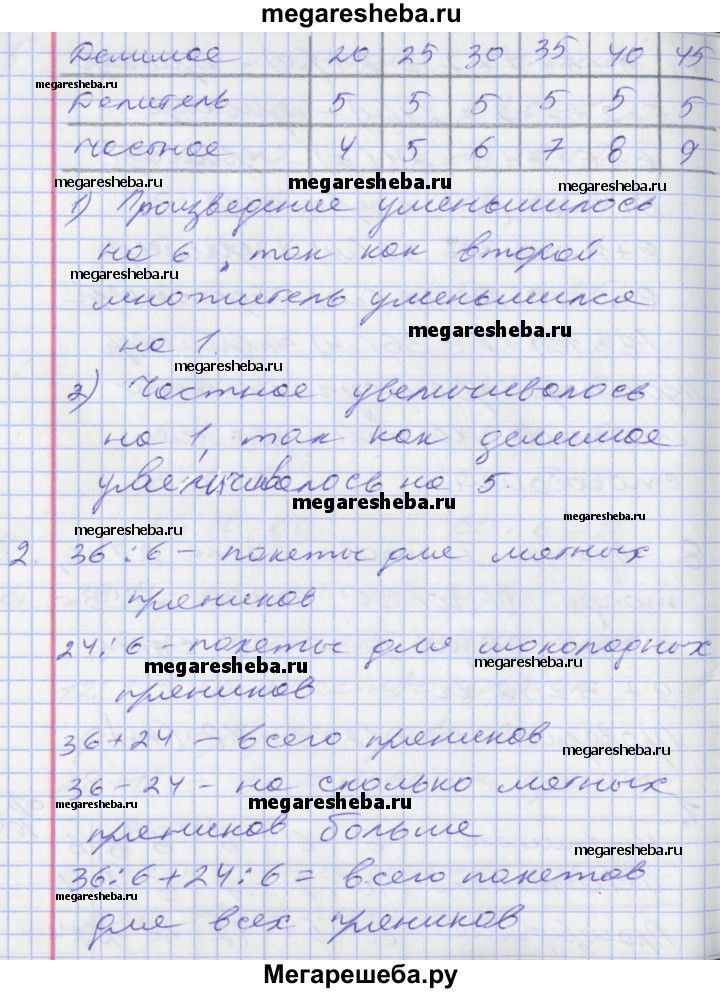 megaresheba.ru
Делимое 20 25 30 35 40 45
megaresheba.ru
Делитель 5 5 5 5 5 5
Частное 4 5 6 7 8 9
megaresheba.ru megaresheba.ru megaresheba.ru
1) Произведение уменьшилось
на 6, так как второй
megaresheba.ru
множитель уменьшился
megaresheba.ru
на 1.
megaresheba.ru
2) Частное увеличивалось
на 1, так как делимое
увеличивалось на 5.
megaresheba.ru
megaresheba.ru megaresheba.ru
2. 36 : 6 – пакеты для мятных
пряников
24 : 6 – пакеты для шоколадных
megaresheba.ru megaresheba.ru
пряников
36 + 24 – всего пряников
megaresheba.ru
36 – 24 – на сколько мятных
megaresheba.ru megaresheba.ru
пряников больше
megaresheba.ru
36 : 6 + 24 : 6 = всего пакетов
megaresheba.ru
для всех пряников
megaresheba.ru
Мегарешеба.ру